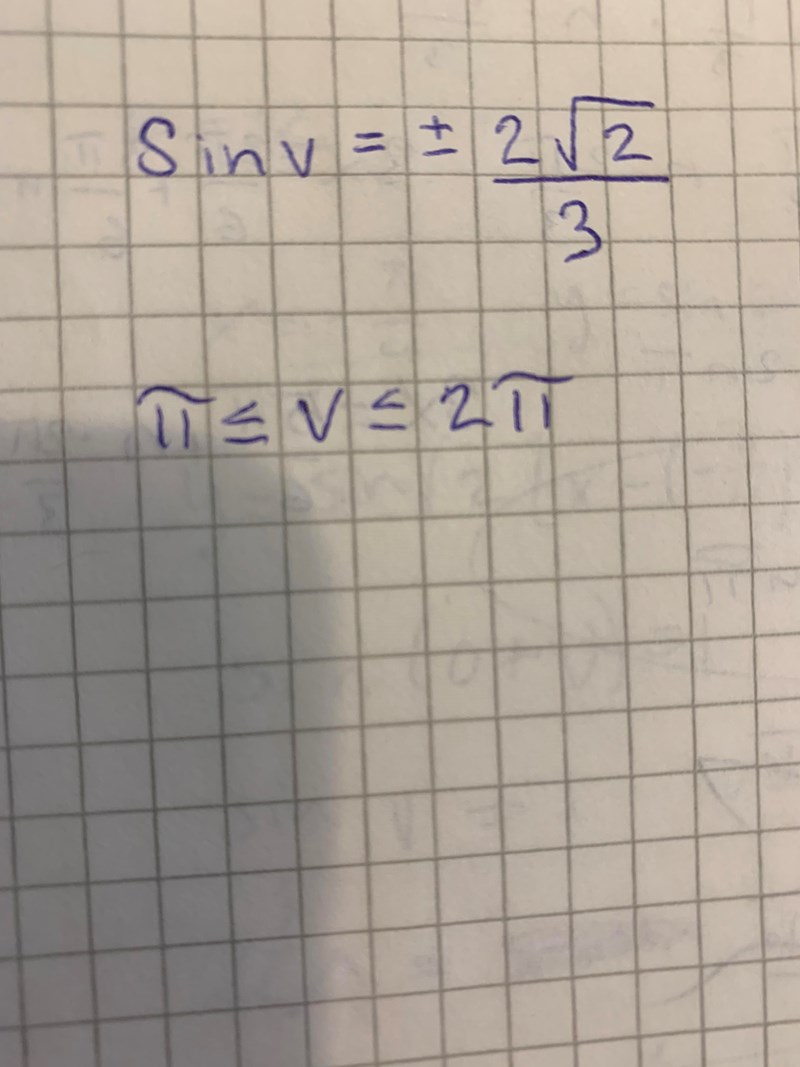 Sin v = ± 2√2/3
π ≤ v ≤ 2π